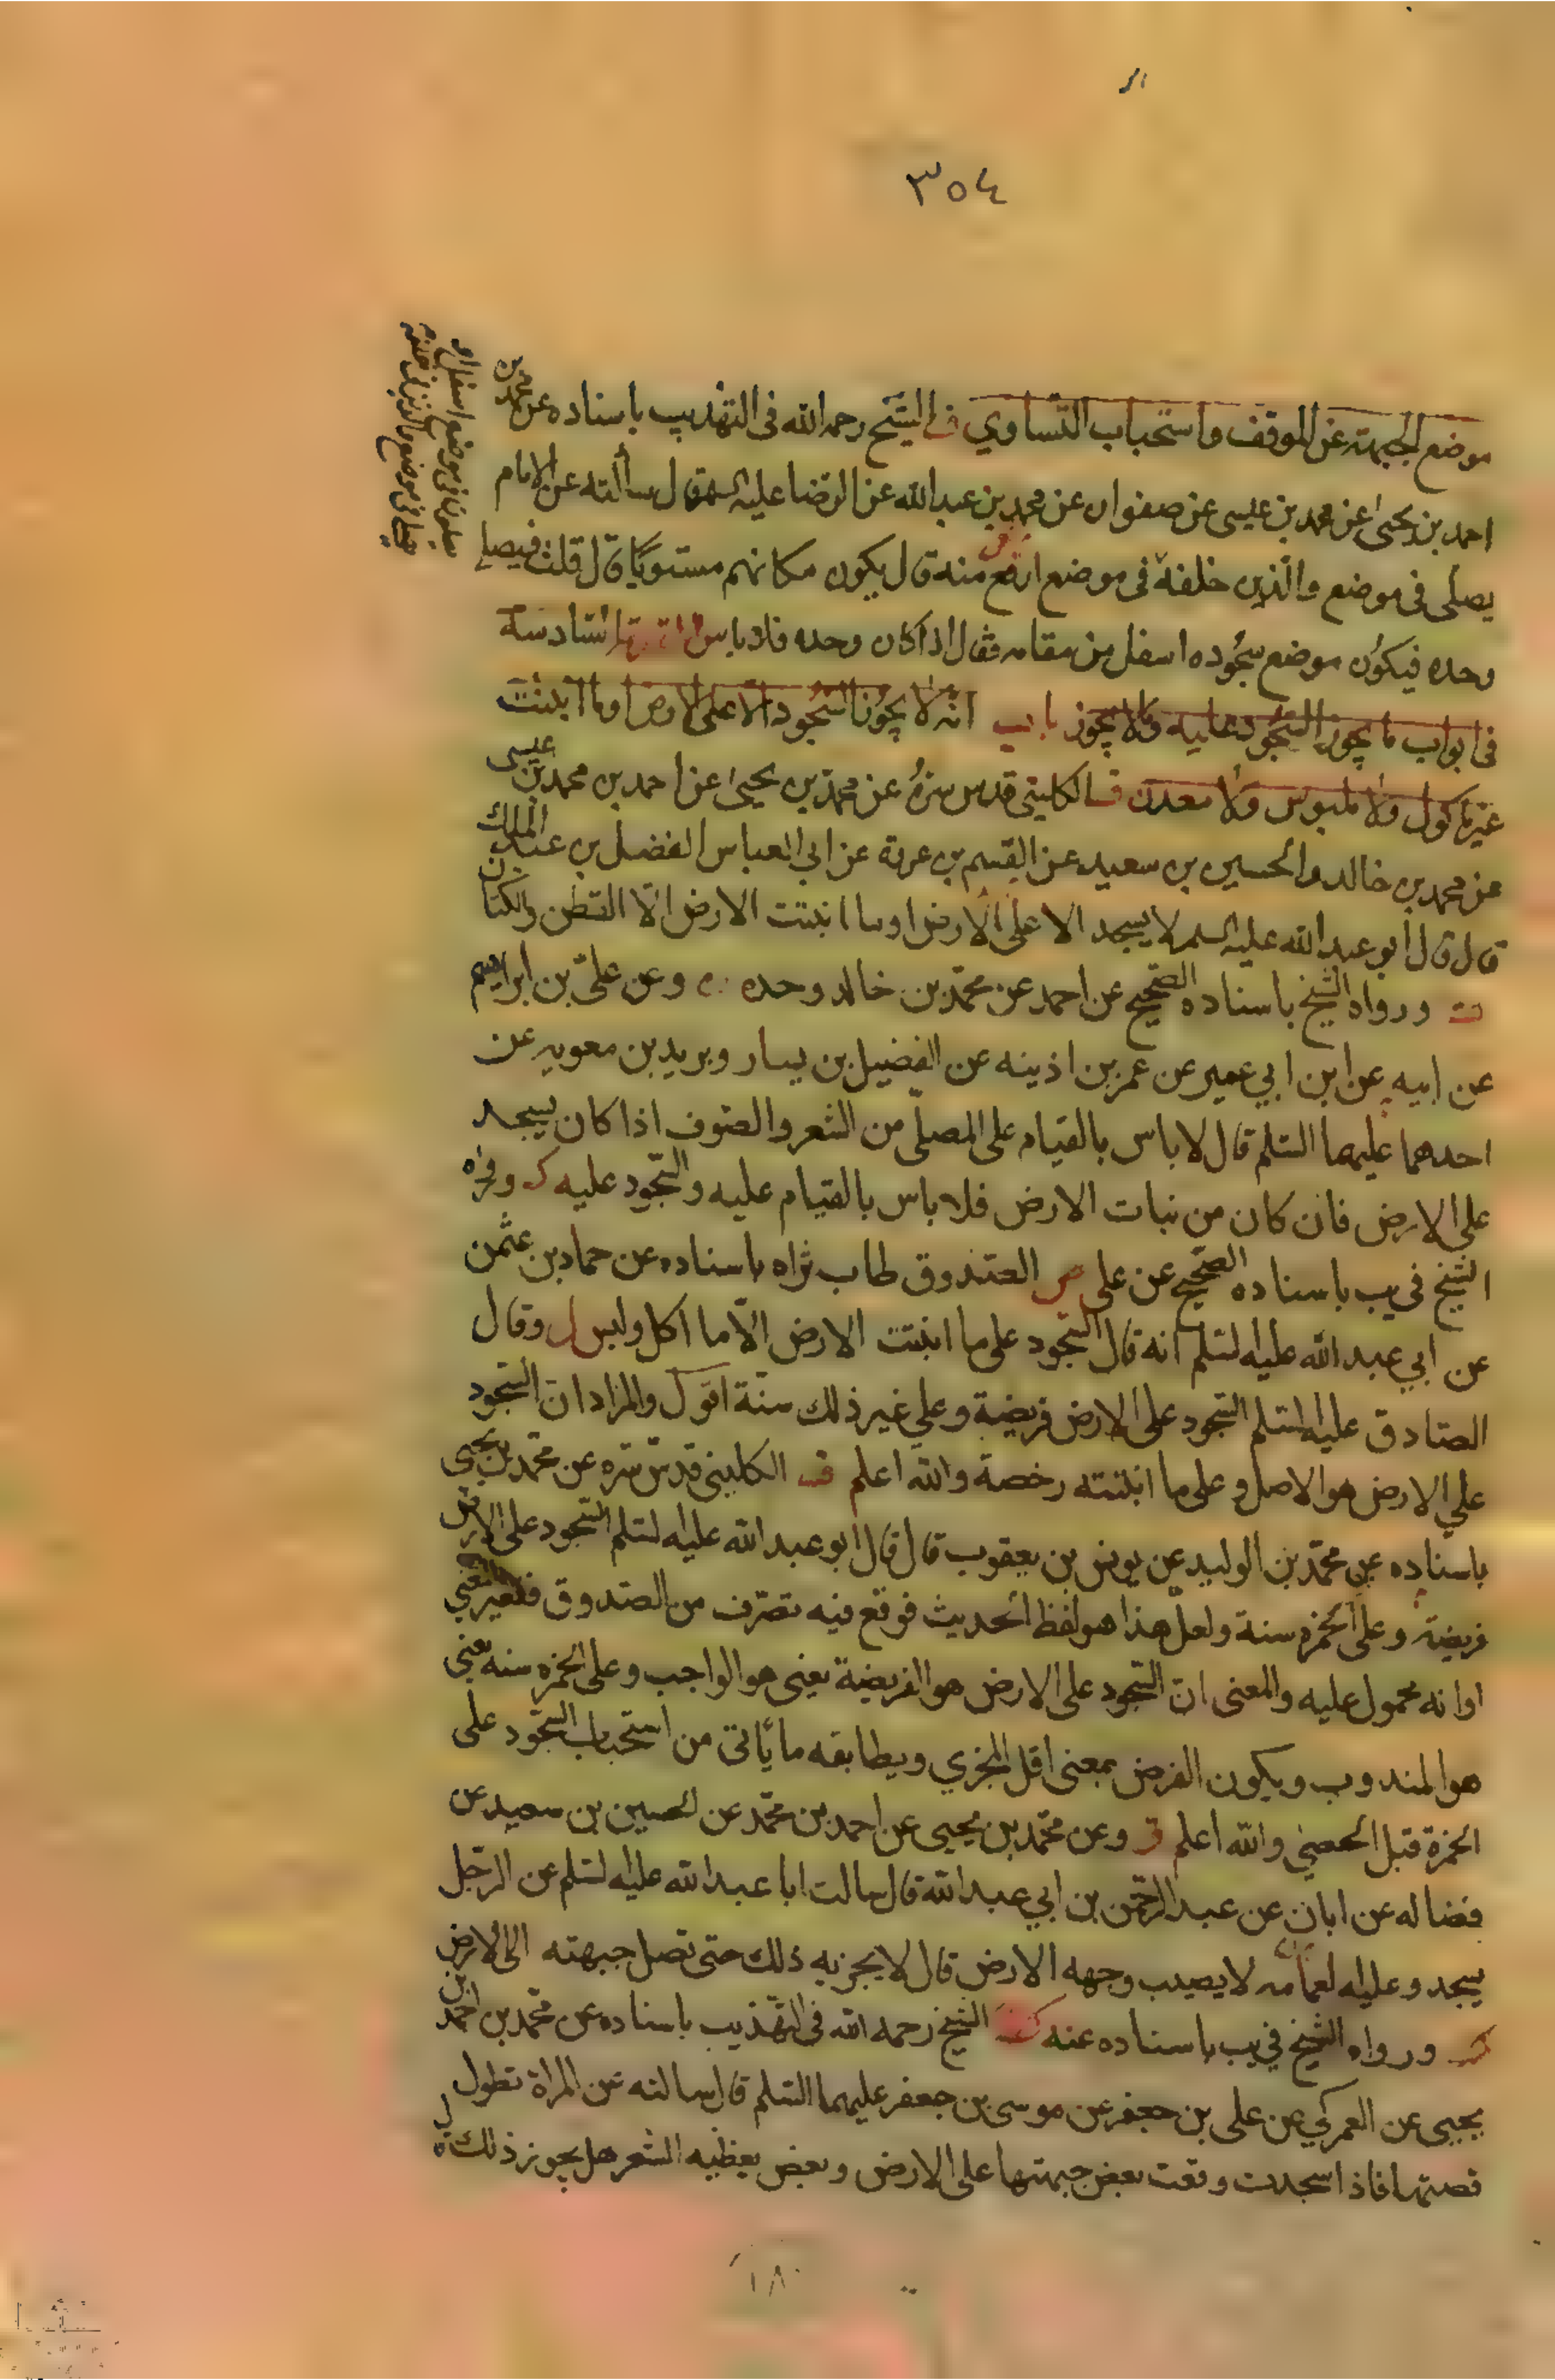 ٣٥٤
موضع الجبهة عن الموقف واستحباب التساوي الشيخ رحمه الله في التهذيب باسناده عن محمد بن
احمد بن يحيى عن محمد بن عيسى عن صفوان عن محمد بن عبدالله عن الرضا عليه السلم قال سألته عن الامام
يصلى في موضع والذين خلفه في موضع ارفع منه قال يكون مكانهم مستويا قال قلت فيصلي
وحده فيكون موضع سجوده اسفل من مقامه فقال اذا كان وحده فلا باس السادسة
في ابواب ما يجوز السجود عليه وما لا يجوز باب انه لا يجوز السجود الا على الارض او ما انبتت
غير ماكول ولا ملبوس ولا معدن الكليني قدس سره عن محمد بن يحيى عن احمد بن محمد بن عيسى
عن محمد بن خالد والحسين بن سعيد عن القسم بن عروة عن ابي العباس الفضل بن عبد الملك
قال قال أبو عبدالله عليه السلم لا يسجد الا على الارض او ما انبتت الارض الا القطن والكتان
ورواه الشيخ باسناده الصحيح عن احمد عن محمد بن خالد وحده وعن علي بن ابراهيم
عن ابيه عن ابن ابي عمير عن عمر بن اذينه عن الفضيل بن يسار وبريد بن معويه عن
احدهما عليهما السلم قال لا باس بالقيام على المصلّى من الشعر والصوف اذا كان يسجد
على الارض فان كان من نبات الارض فلا باس بالقيام عليه والسجود عليه
الشيخ في يب باسناده الصحيح عن علي الصدوق طاب ثراه باسناده عن حماد بن عثمن
عن ابي عبدالله عليه السلم انه قال السجود على ما انبتت الارض الّا ما اكل ولبس وقال
الصادق عليه السلم السجود على الارض فريضة وعلي غير ذلك سنّة اقول والمراد ان السجود
علي الارض هو الاصل وعلى ما انبتته رخصة والله اعلم الكليني قدس سره عن محمد بن يحيى
باسناده عن محمد بن الوليد عن يونس بن يعقوب قال قال ابو عبدالله عليه السلم السجود على الارض
فريضة وعلى الخمرة سنة ولعل هذا هو لفظ الحديث فوقع فيه تصرّف من الصدوق
او انه محمول عليه والمعنى ان السجود على الارض هو الفريضة يعني هو الواجب وعلى الخمرة سنه يعني
هو المندوب ويكون الفرض بمعنى اقل المجزي ويطابقه ما يأتى من استحباب السجود على
الخمرة والله اعلم وعن محمد بن يحيى عن احمد بن محمد عن الحسين بن سعيد عن
فضاله عن ابان عن عبد الرحمن بن ابي عبدالله قال سالت ابا عبدالله عليه السلم عن الرجل
يسجد وعليه العمامه لا يصيب وجهه الارض قال لا يجزيه ذلك حتى تصل جبهته الى الارض
ورواه الشيخ في يب باسناده عنه الشيخ رحمه الله في التهذيب باسناده عن محمد بن احمد بن
يحيى عن العمركي عن علي بن جعفر عن موسى بن جعفر عليهما السلم قال سالته عن المراة تطول
قصتها فاذا سجدت وقعت بعض جبهتها على الارض وبعض يغطيه الشعر هل يجوز ذلك
١٨٠